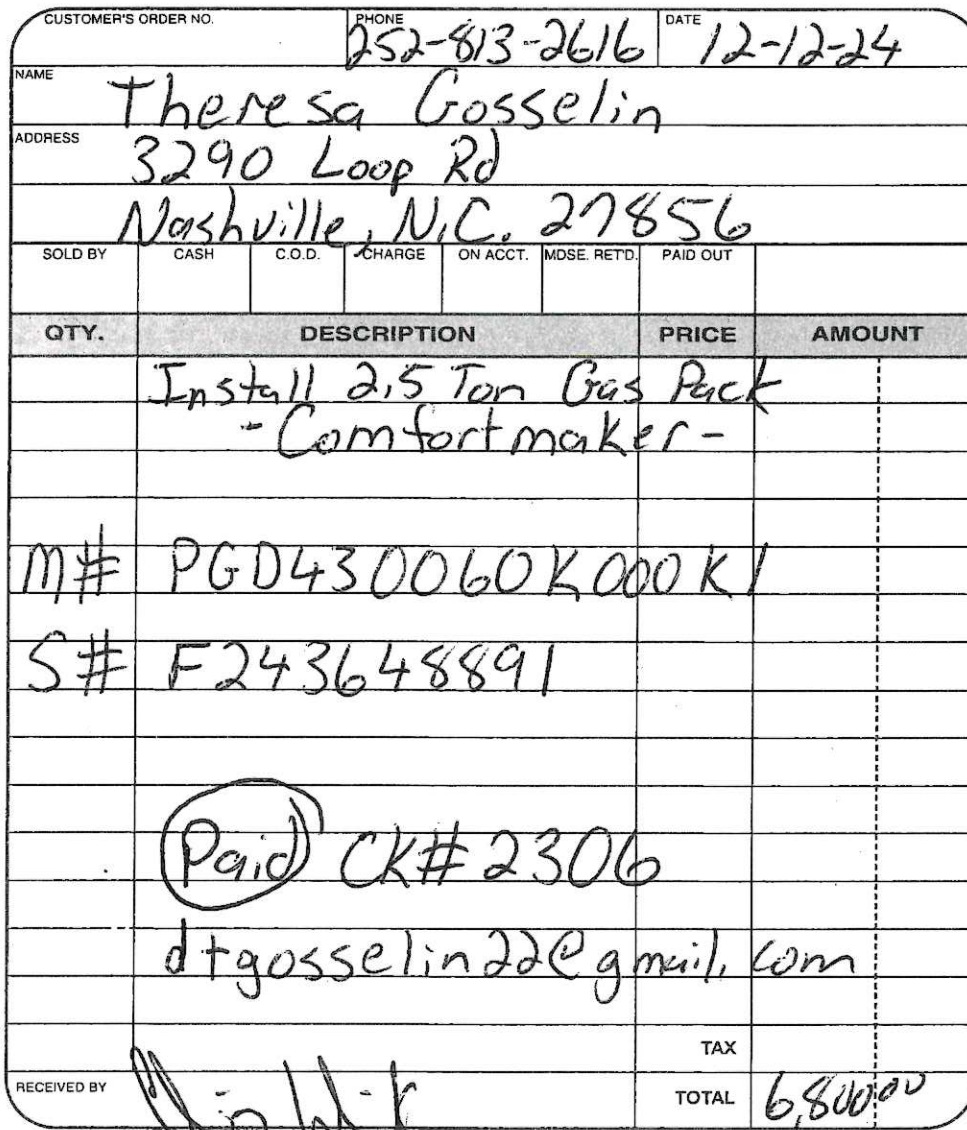 CUSTOMER'S ORDER NO. PHONE 252-813-2616 DATE 12-12-24
NAME Theresa Gosselin
ADDRESS 3290 Loop Rd
Nashville, N.C. 27856
SOLD BY CASH C.O.D. CHARGE ON ACCT. MDSE. RET'D. PAID OUT
QTY. DESCRIPTION PRICE AMOUNT
Install 2.5 Ton Gas Pack
- Comfortmaker -
M# PGD430060K000K1
S# F243648891
Paid CK# 2306
dtgosselin22@gmail.com
TAX
RECEIVED BY TOTAL 6,800.00